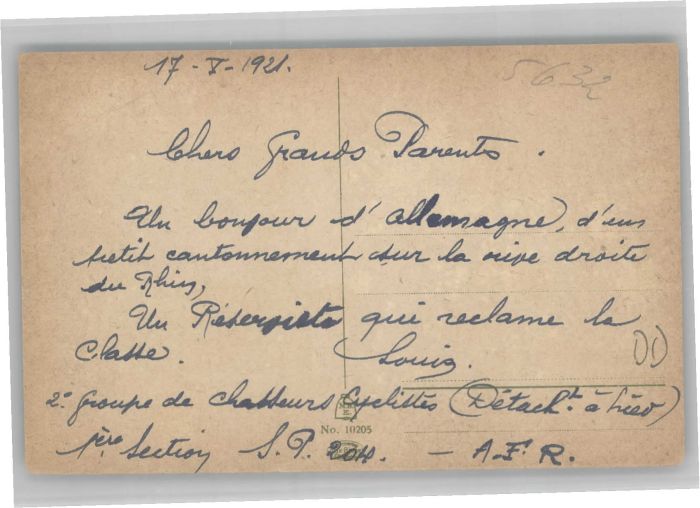 17 - V - 1921.
5632
Chers Grands Parents.
Un bonjour d'Allemagne, d'un
petit cantonnement sur la rive droite
du Rhin,
Un Réserviste qui reclame la
Classe.
Louis.
2e Groupe de Chasseurs Cyclistes (Détacht à
No. 10205
1ère Section S. P. 204. - A. F. R.